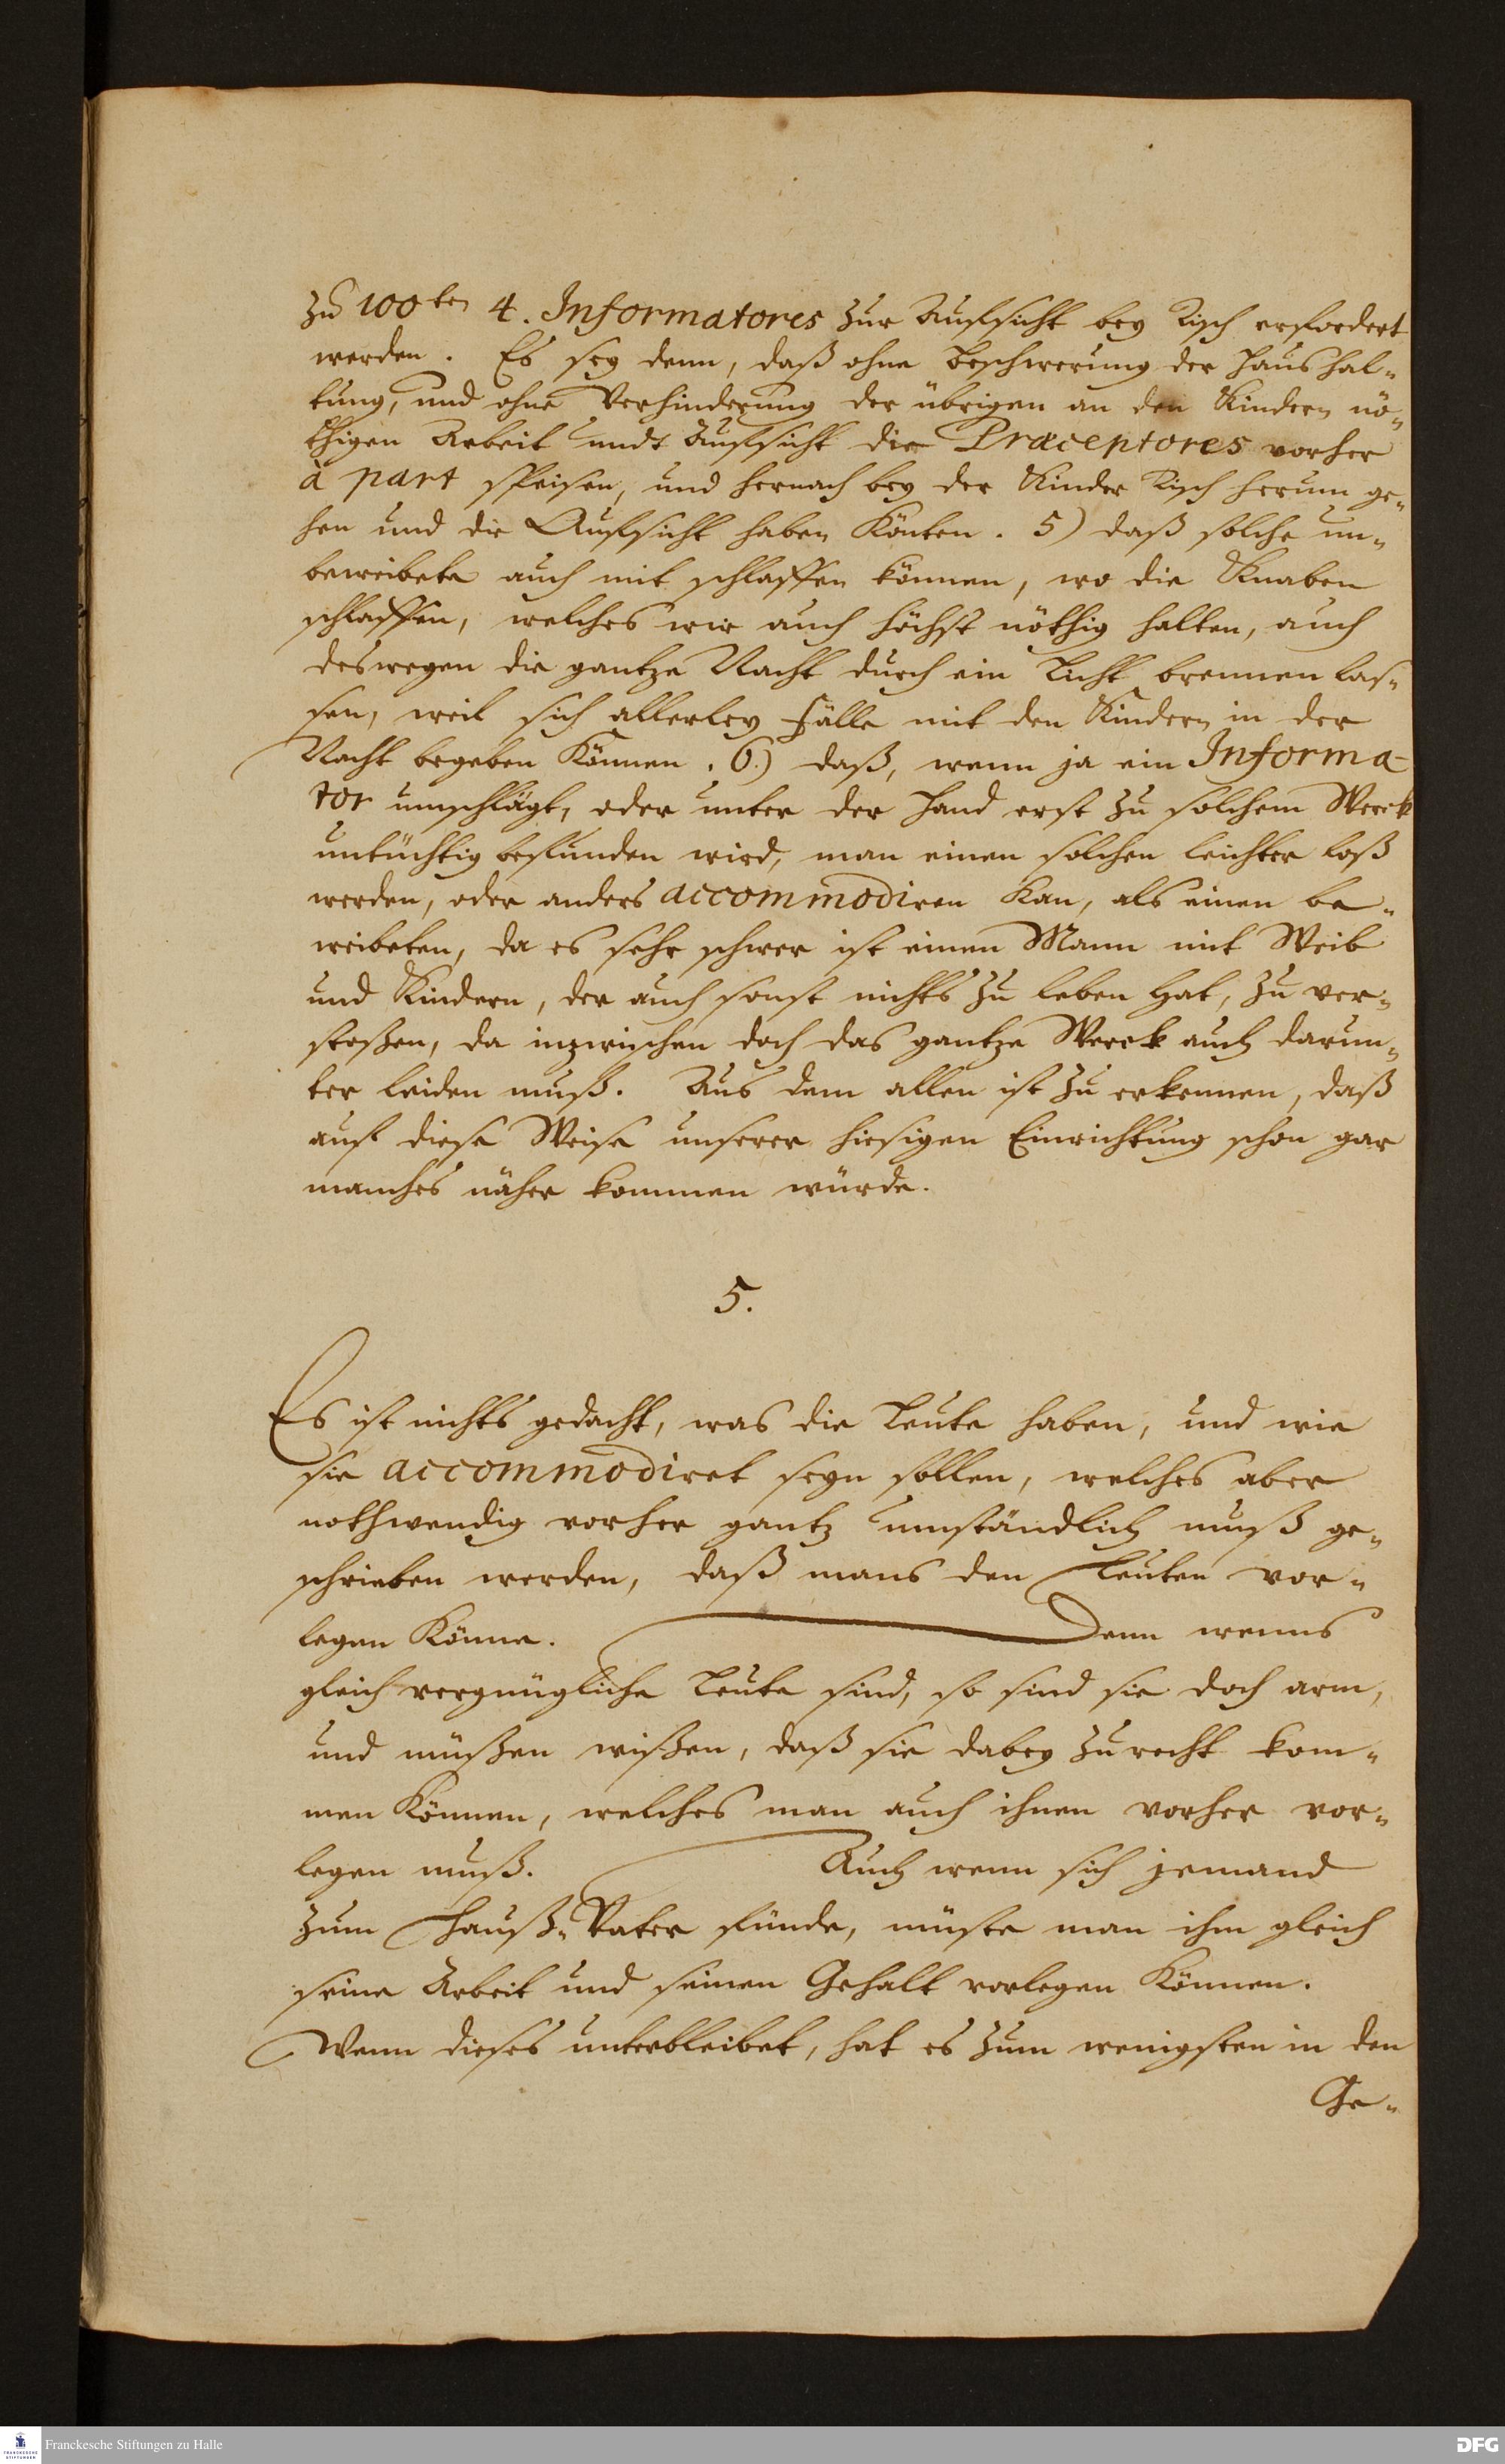 zu 100ten 4. Informatores zur Auffsicht bey Tisch erfordert
werden. Es sey denn, daß ohne Beschwerung der Haushal-
tung, und ohne Verhinderung der übrigen an den Kindern nö-
thigen Arbeit und Auffsicht die Præceptores vorher
à part speisen, und hernach bey der Kinder Tisch herum ge-
hen und die Auffsicht haben könten. 5) daß solche un-
beweibete auch mit schlaffen können, wo die Knaben
schlaffen, welches wir auch höchst nöthig halten, auch
deswegen die gantze Nacht durch ein Licht brennen las-
sen, weil sich allerley Fälle mit den Kindern in der
Nacht begeben können. 6.) daß, wenn ja ein Informa-
tor umschlägt, oder unter der Hand erst zu solchem Werck
untüchtig befunden wird, man einen solchen leichter loß
werden, oder anders accommodiren kan, als einen be-
weibeten, da es sehr schwer ist einen Mann mit Weib
und Kindern, der auch sonst nichts zu leben hat, zu ver-
stoßen, da inzwischen doch das gantze Werck auch darun-
ter leiden muß. Aus dem allen ist zu erkennen, daß
auf diese Weise unserer hiesigen Einrichtung schon gar
manches näher kommen würde.
5.
Es ist nichts gedacht, was die Leute haben, und wie
sie accommodiret seyn sollen, welches aber
nothwendig vorher gantz umständlich muß ge-
schrieben werden, daß mans den Leuten vor-
legen könne. Denn wenns
gleich vergnügliche Leute sind, so sind sie doch arm,
und müßen wißen, daß sie dabey zu recht kom-
men können, welches man auch ihnen vorher vor-
legen muß. Auch wenn sich jemand
zum Hauß-Vater fünde, müste man ihm gleich
seine Arbeit und seinen Gehalt vorlegen können.
Wenn dieses unterbleibet, hat es zum wenigsten in den
Ge-
Franckesche Stiftungen zu Halle
DFG